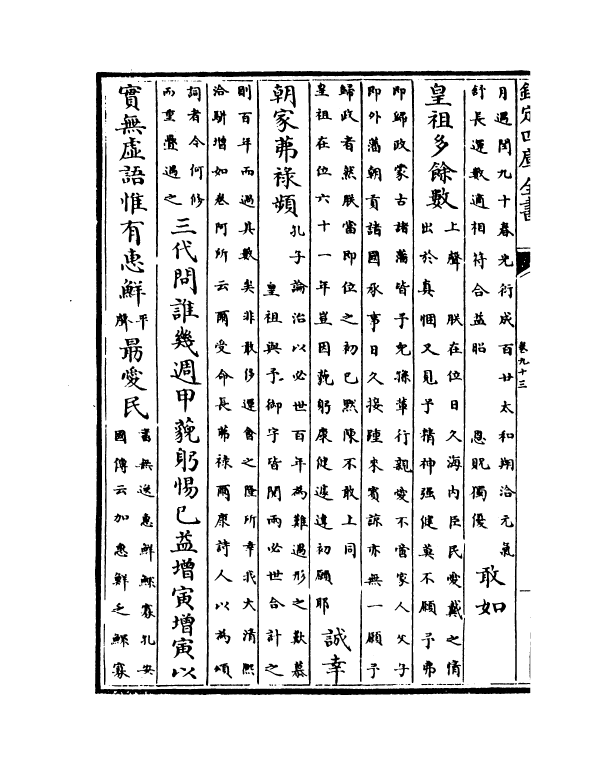 欽定四庫全書
卷九十三
月遇閏九十春光衍成百廿太和翔洽元氣
紆長運數適相符合益昭 恩貺獨優
敢如
皇祖多餘數
上聲 朕在位日久海内臣民愛戴之情
出於真悃又見予精神强健莫不願予弗
即歸政蒙古諸藩皆予兒孫輩行親愛不啻家人父子
即外藩朝貢諸國承事日久接踵來賓諒亦無一願予
歸政者然朕當即位之初已默陳不敢上同
皇祖在位六十一年豈因藐躬康健遽違初願耶
誠幸
朝家茀祿頻
孔子論治以必世百年為難遇形之歎慕
皇祖與予御宇皆閱兩必世合計之
則百年而過其數矣非敢侈運會之隆所幸我大清熙
洽駢增如卷阿所云爾受命長茀祿爾康詩人以為頌
詞者今何修
而重疊遇之
三代問誰幾週甲藐躬惕已益增寅增寅以
實無虛語惟有惠鮮
平
聲
最愛民
書無逸惠鮮鰥寡孔安
國傳云加惠鮮乏鰥寡